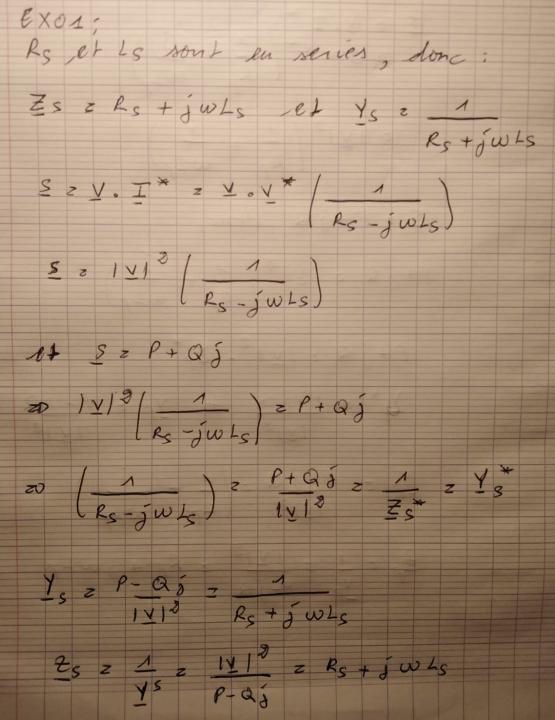 EXO1;
Rs et Ls sont en series, donc :
Z̲s = Rs + jωLs et Y̲s = 1/(Rs + jωLs)
S̲ = V̲ . I̲* = V̲ . V̲* (1/(Rs - jωLs))
S̲ = |V̲|² (1/(Rs - jωLs))
et S̲ = P + Qj
=> |V̲|² (1/(Rs - jωLs)) = P + Qj
=> (1/(Rs - jωLs)) = (P + Qj)/|V̲|² = 1/Z̲s* = Y̲s*
Y̲s = (P - Qj)/|V̲|² = 1/(Rs + jωLs)
Z̲s = 1/Y̲s = |V̲|²/(P - Qj) = Rs + jωLs